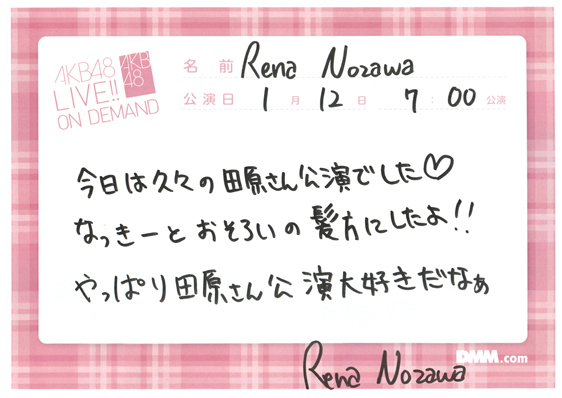 AKB48
LIVE!!
ON DEMAND
AKB
48
名前 Rena Nozawa
公演日 1月 12日 7:00公演
今日は久々の田原さん公演でした♡
なっきーとおそろいの髪方にしたよ!!
やっぱり田原さん公演大好きだなぁ
DMM.com
Rena Nozawa